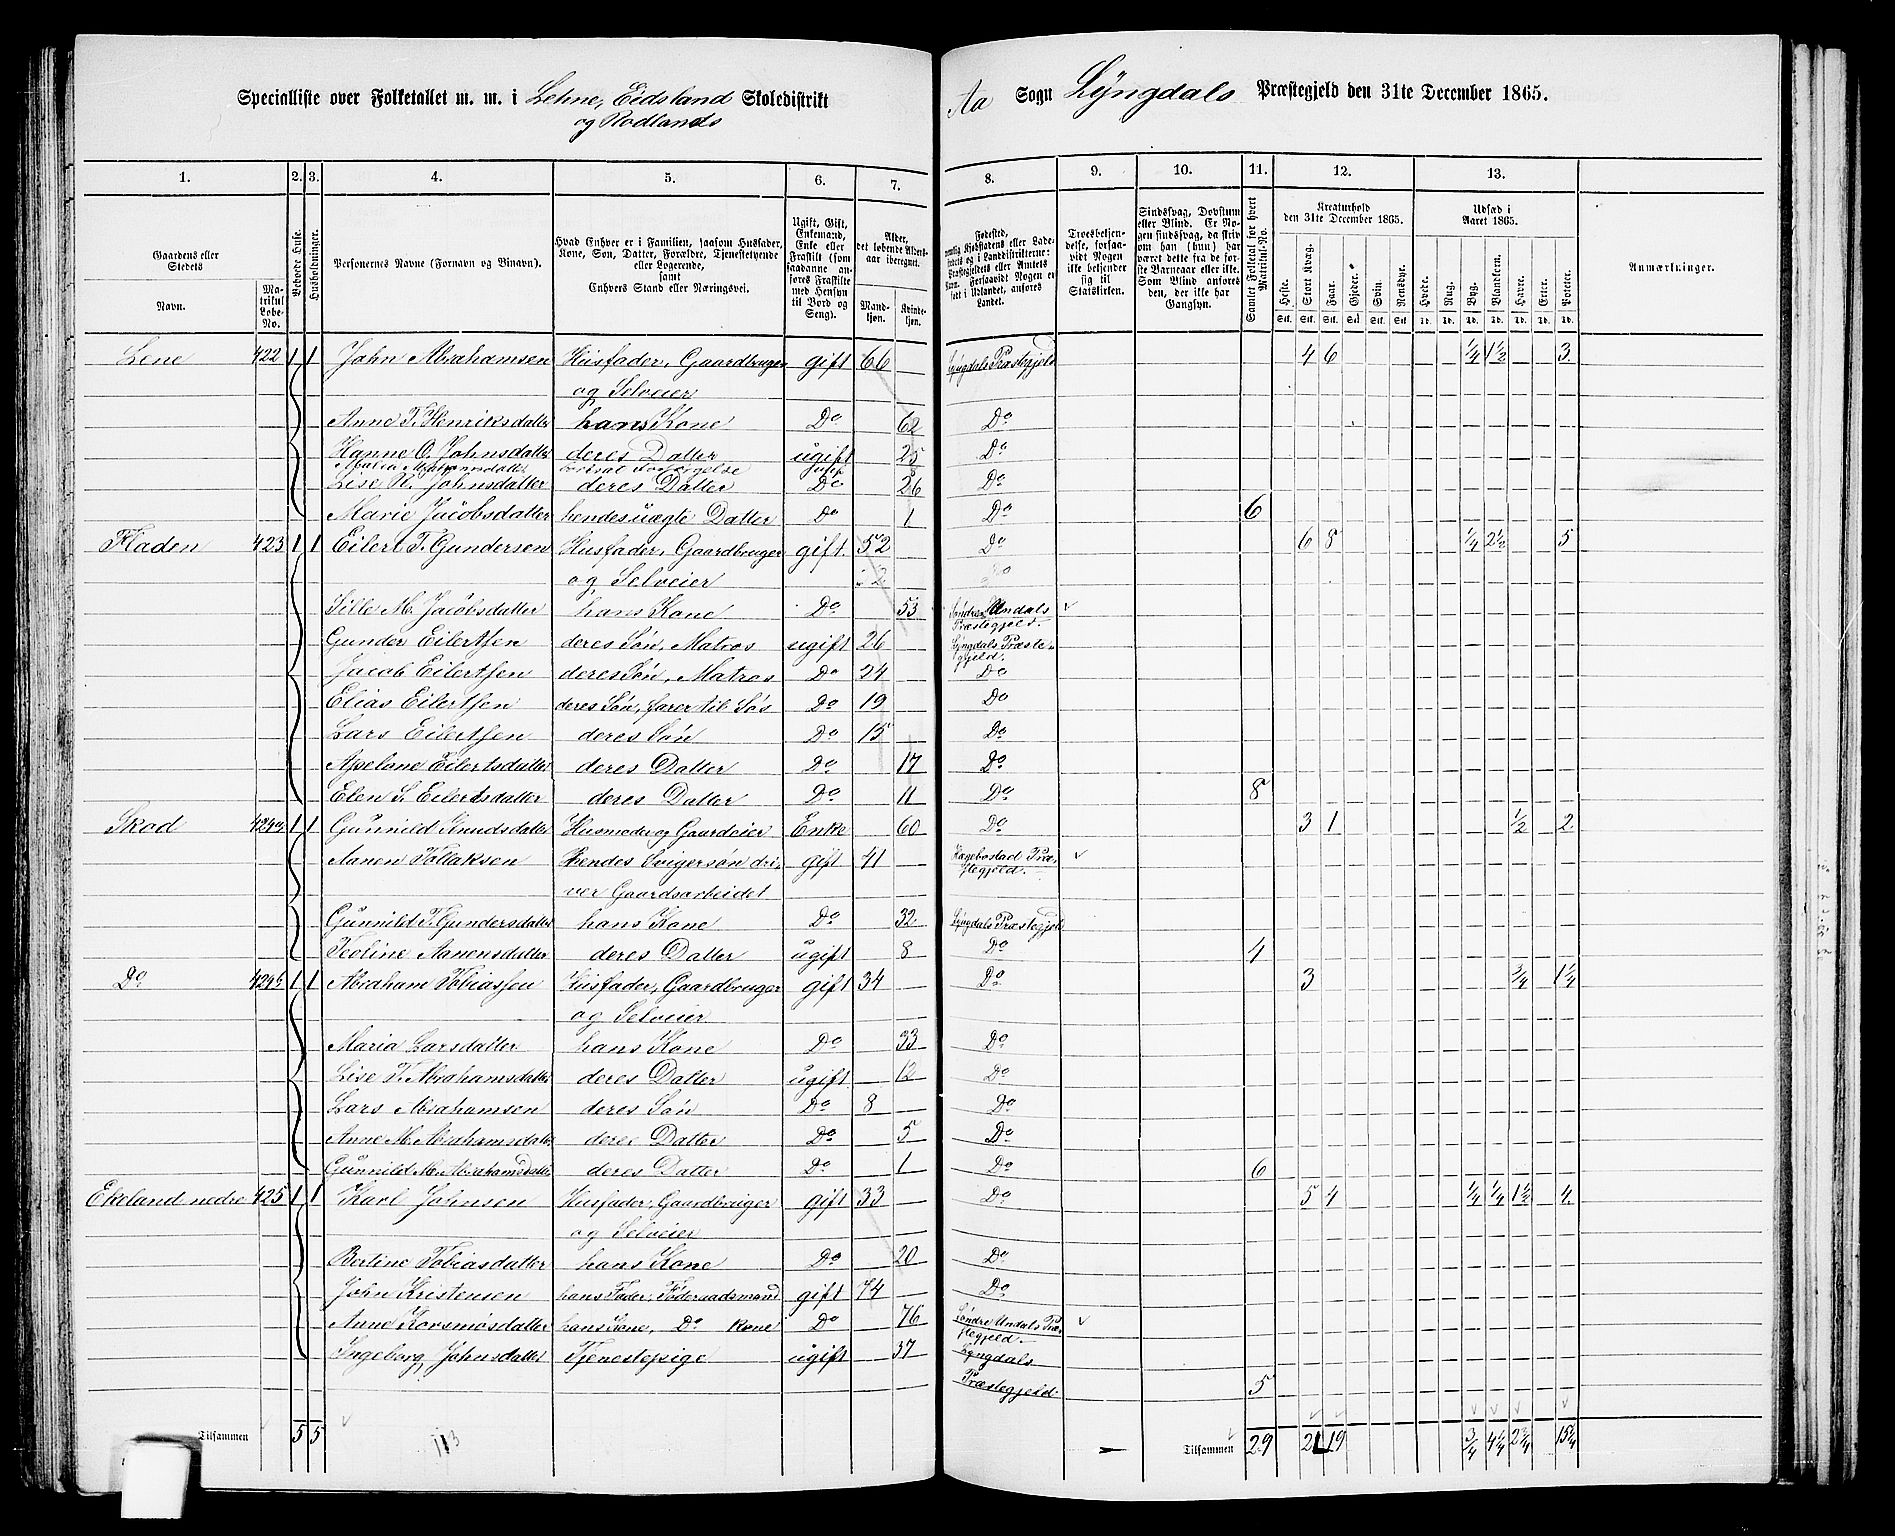 Specialliste over Folketallet m. m. i Lehne, Eidsland Skoledistrikt
og Rødlands
Aa Sogn Lyngdals Præstegjeld den 31te December 1865.
1. 2. 3. 4. 5. 6. 7. 8. 9. 10. 11. 12. 13.
Gaardens eller Stedets
Navn.
Matrikul Løbe-No.
Beboede Huse.
Husholdninger.
Personernes Navne (Fornavn og Binavn).
Hvad Enhver er i Familien, saasom Husfader, Kone, Søn, Datter, Forældre, Tjenestetyende eller Logerende,
samt
Enhvers Stand eller Næringsvei.
Ugift, Gift, Enkemand, Enke eller Fraskilt (som saadanne anføres Fraskilte med Hensyn til Bord og Seng).
Alder, det løbende Aldersaar iberegnet.
Mandkjøn. Kvindekjøn.
Fødested,
Troesbekjendelse, forsaavidt Nogen ikke bekjender sig til Statskirken.
Sindssvag, Døvstum eller Blind. Er Nogen sindssvag, da skrives om han (hun) har været dette fra de første Barneaar eller ikke. Som Blind anføres den, der ikke har Gangsyn.
Samlet Folketal for hvert Matrikul-No.
Kreaturhold den 31te December 1865.
Heste. Stort Kvæg. Faar. Gjeder. Svin. Rensdyr.
Udsæd i Aaret 1865.
Hvede. Rug. Byg. Blandkorn. Havre. Erter. Poteter.
Anmærkninger.
Lene 422 1 1 John Abrahamsen Husfader, Gaardbruger gift 66 Lyngdals Præstegjeld 4 6 1/4 1 1/2 3
og Selveier
Anne T. Henriksdatter hans Kone Do 62 Do
Hanne O. Johnsdatter deres Datter ugift 25 Do
Lise A. Johnsdatter deres Datter Do 26 Do
Marie Jacobsdatter hendes uægte Datter Do 1 Do 6
Fladen 423 1 1 Eilert T. Gundersen Husfader, Gaardbruger gift 52 Do 6 8 1/4 2 1/2 5
og Selveier
Sille M. Jacobsdatter hans Kone Do 53 Søndre Undals Præstegjeld.
Gunder Eilertsen deres Søn, Matros ugift 26 Lyngdals Præstegjeld.
Jacob Eilertsen deres Søn, Matros Do 24 Do
Elias Eilertsen deres Søn, farer til Søs Do 19 Do
Lars Eilertsen deres Søn Do 15 Do
Axeliane Eilertsdatter deres Datter Do 17 Do
Elen S. Eilertsdatter deres Datter Do 11 Do 8
Skod 424a 1 1 Gunnild Knudsdatter Husmoder og Gaardeier Enke 60 Do 3 1 1/2 2
Aanen Tollaksen hendes Svigersøn dri- gift 41 Hægebostad Præstegjeld.
ver Gaardsarbeidet
Gunnild T. Gundersdatter hans Kone Do 32 Lyngdals Præstegjeld
Teoline Aanensdatter deres Datter ugift 8 Do 4
Do 424b 1 1 Abraham Tobiassen Husfader, Gaardbruger gift 34 Do 3 3/4 1 1/4
og Selveier
Maria Larsdatter hans Kone Do 33 Do
Lise T. Abrahamsdatter deres Datter ugift 12 Do
Lars Abrahamsen deres Søn Do 8 Do
Anne M. Abrahamsdatter deres Datter Do 5 Do
Gunnild M. Abrahamsdatter deres Datter Do 1 Do 6
Ekeland nedre 425 1 1 Karl Johnsen Husfader, Gaardbruger gift 33 Do 5 4 1/4 1/4 1 1/2 4
og Selveier
Bertine Tobiasdatter hans Kone Do 20 Do
John Kristensen hans Fader, Føderaadsmand gift 74 Do
Anne Korsmosdatter hans Kone, Do Kone Do 76 Søndre Undals Præstegjeld.
Ingeborg Johnsdatter Tjenestepige ugift 37 Lyngdals
Præstegjeld. 5
Tilsammen 5 5 113 Tilsammen 29 21 19 3/4 4 1/4 2 3/4 15 1/4